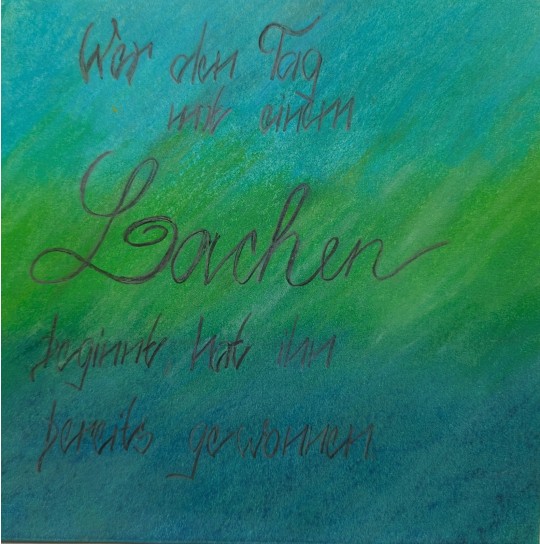 Wer den Tag
mit einem
Lachen
beginnt, hat ihn
bereits gewonnen